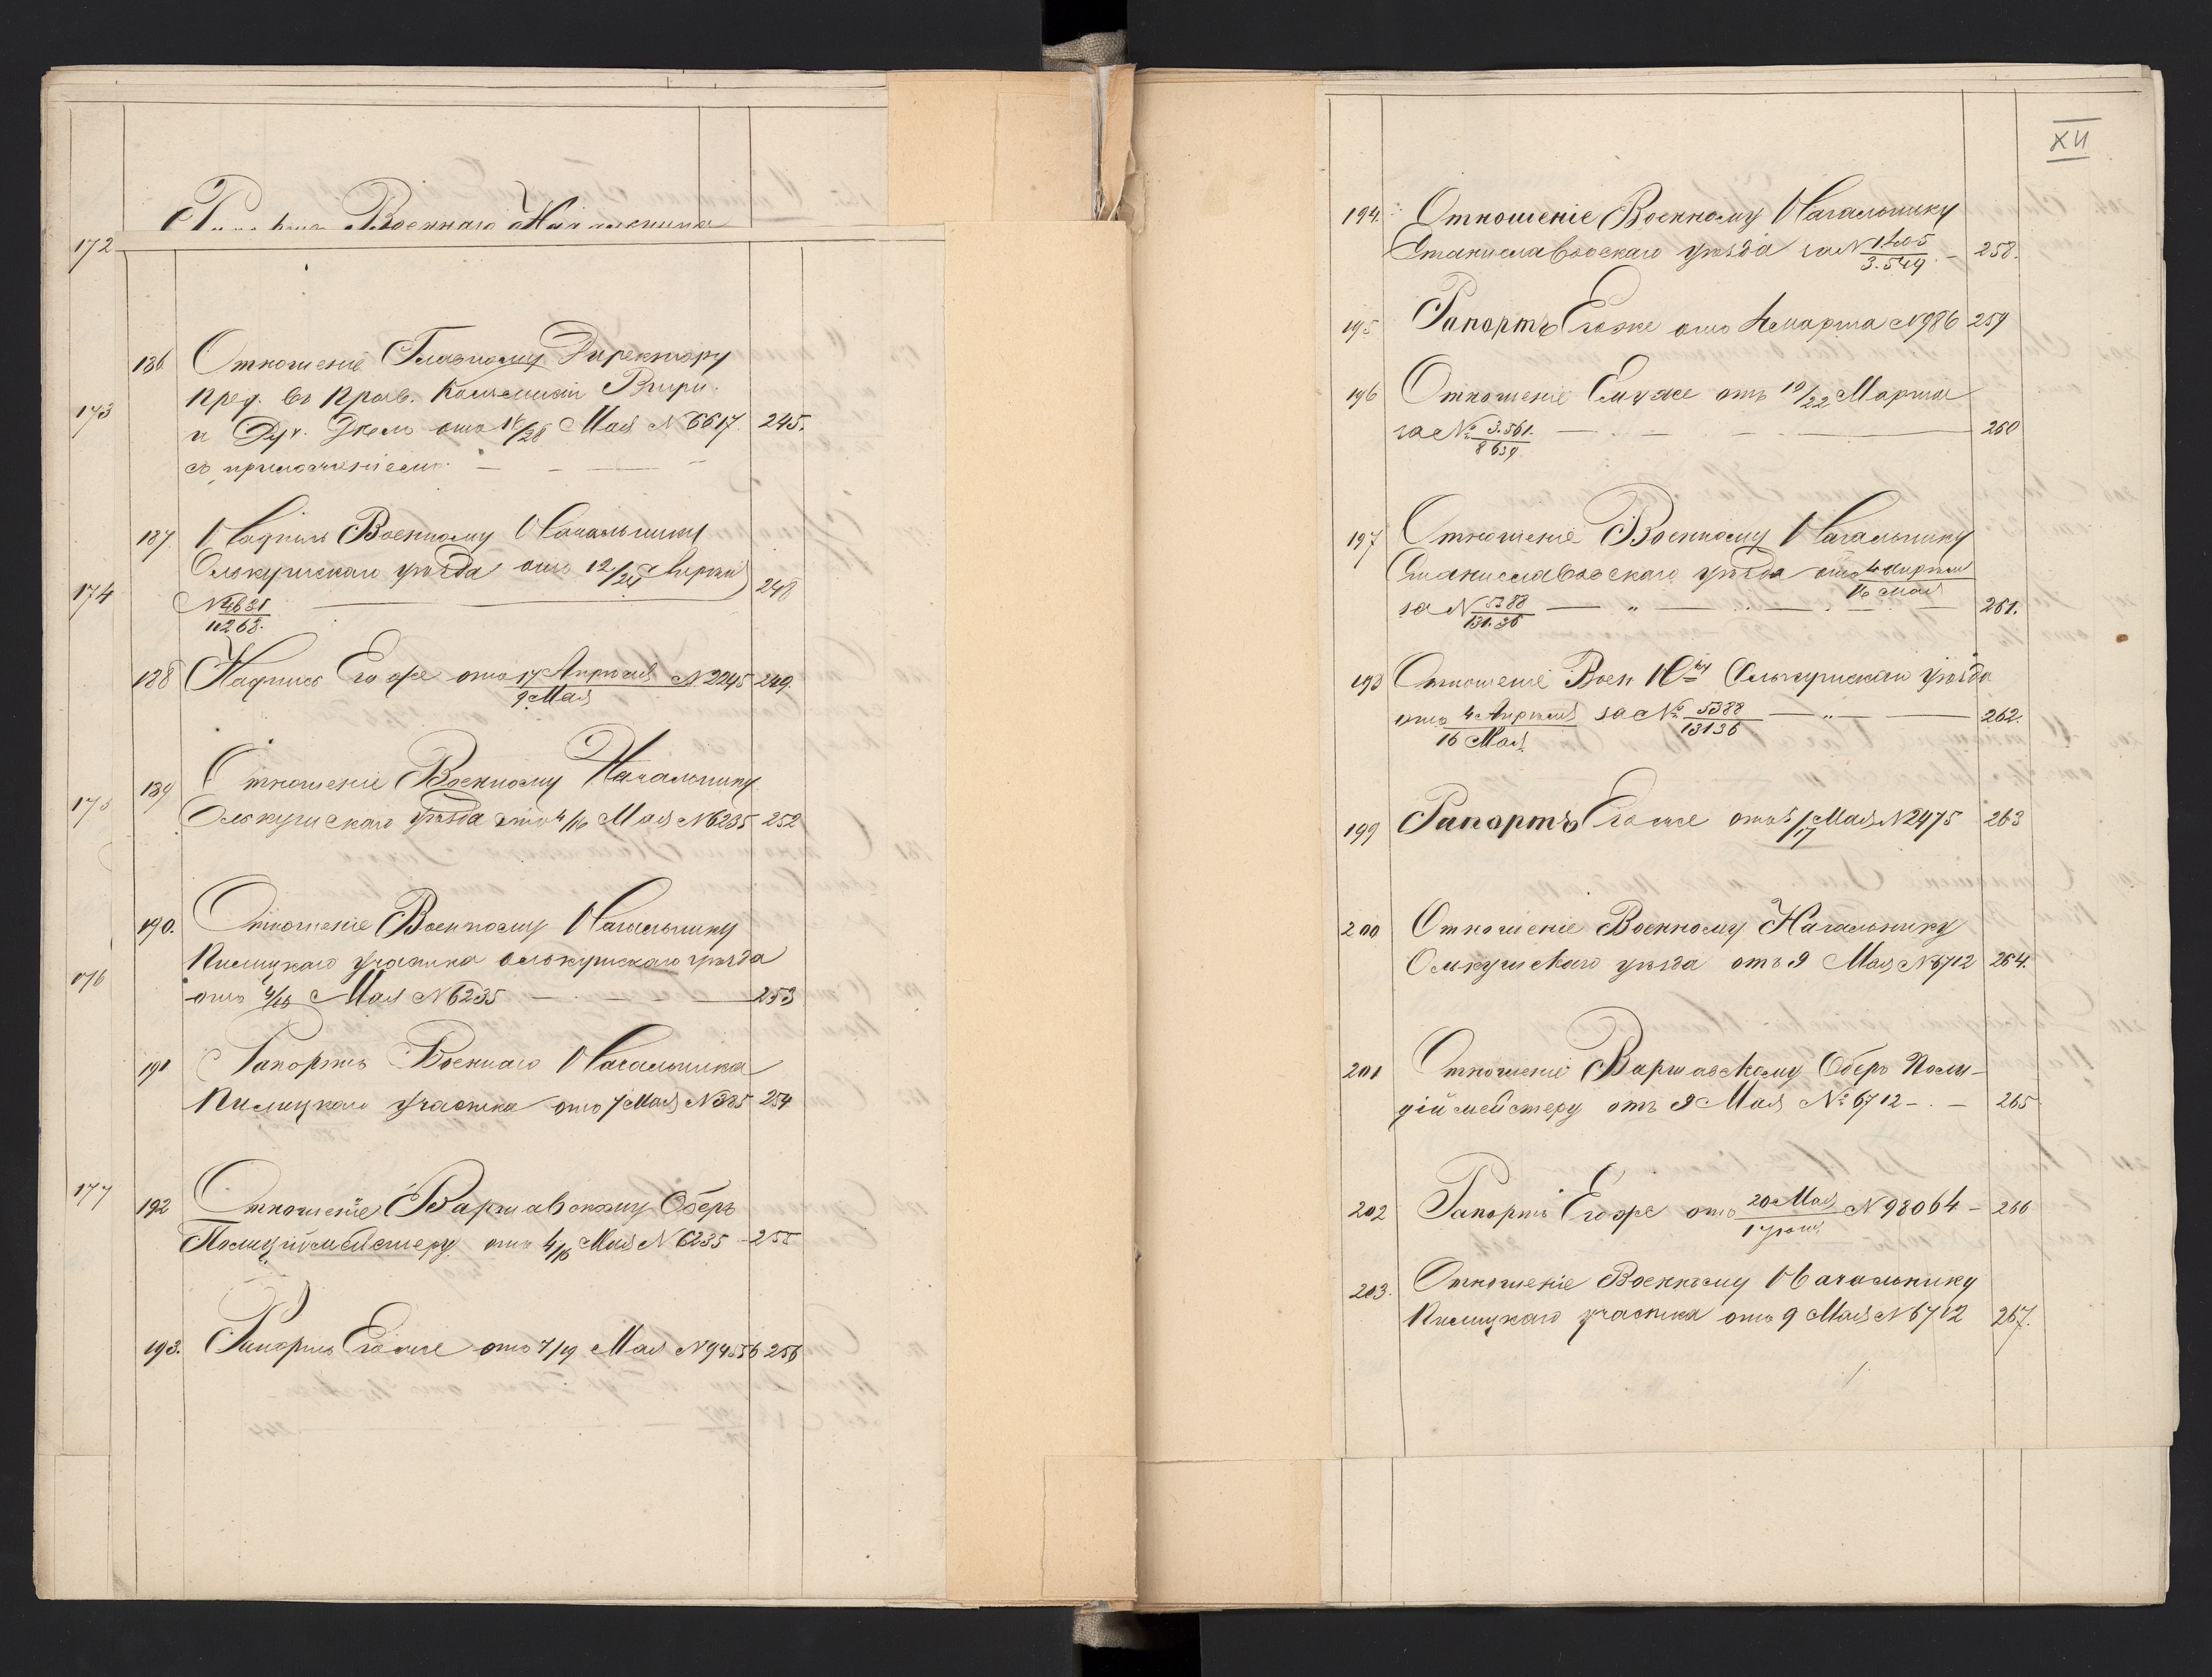 Рапортъ Военнаго Начальника
172
173
174
175
176
177
186 Отношеніе Главному Директору
пред. въ Прав. Коммисіи Внутр.
и Дух. Делъ отъ 16/28 Мая N 6617 245.
съ приложеніемъ
187 Надпись Военному Начальнику
Олькушскаго уѣзда отъ 12/24 Апрѣля
N 4631/11263. 248
188 Надпись Его же отъ 17 Апрѣля/9 Мая N 2245 249.
189 Отношеніе Военному Начальнику
Олькушскаго уѣзда отъ 4/16 Мая N 6235 252
190. Отношеніе Военному Начальнику
Пилицкаго участка олькушскаго уѣзда
отъ 4/16 Мая N 6235 253
191 Рапортъ Военнаго Начальника
Пилицкаго участка отъ 7 Мая N 385 254
192 Отношеніе Варшавскому Оберъ
Полицiймейстеру отъ 4/16 Мая N 6235 255
193. Рапортъ Егоже отъ 7/19 Мая N 94556 256
XII
194. Отношеніе Военному Начальнику
Станиславовскаго уѣзда за N 1405/3.549 258.
195 Рапортъ Егоже отъ 4 марта N 986 259
196 Отношеніе Емуже отъ 10/22 Марта
за № 3.561./8639 260
197 Отношеніе Военному Начальнику
Станиславовскаго уѣзда отъ 4 Апрѣля/16 Мая
за N 5388/13136 261.
198 Отношеніе Воен Н-ку Олькушскаго уѣзда
отъ 4 Апрѣля/16 Мая за № 5388/13136 262.
199 Рапортъ Егоже отъ 5/17 Мая N 2475 263
200 Отношеніе Военному Начальнику
Олькушскаго уѣзда отъ 9 Мая N 6712 264.
201 Отношеніе Варшавскому Оберъ Поли-
ціймейстеру отъ 9 Мая № 6712 - 265
202 Рапортъ Егоже отъ 20 Мая/1 Іюня N 98064 - 266
203. Отношеніе Военному Начальнику
Пилицкаго участка отъ 9 Мая N 6712 267.